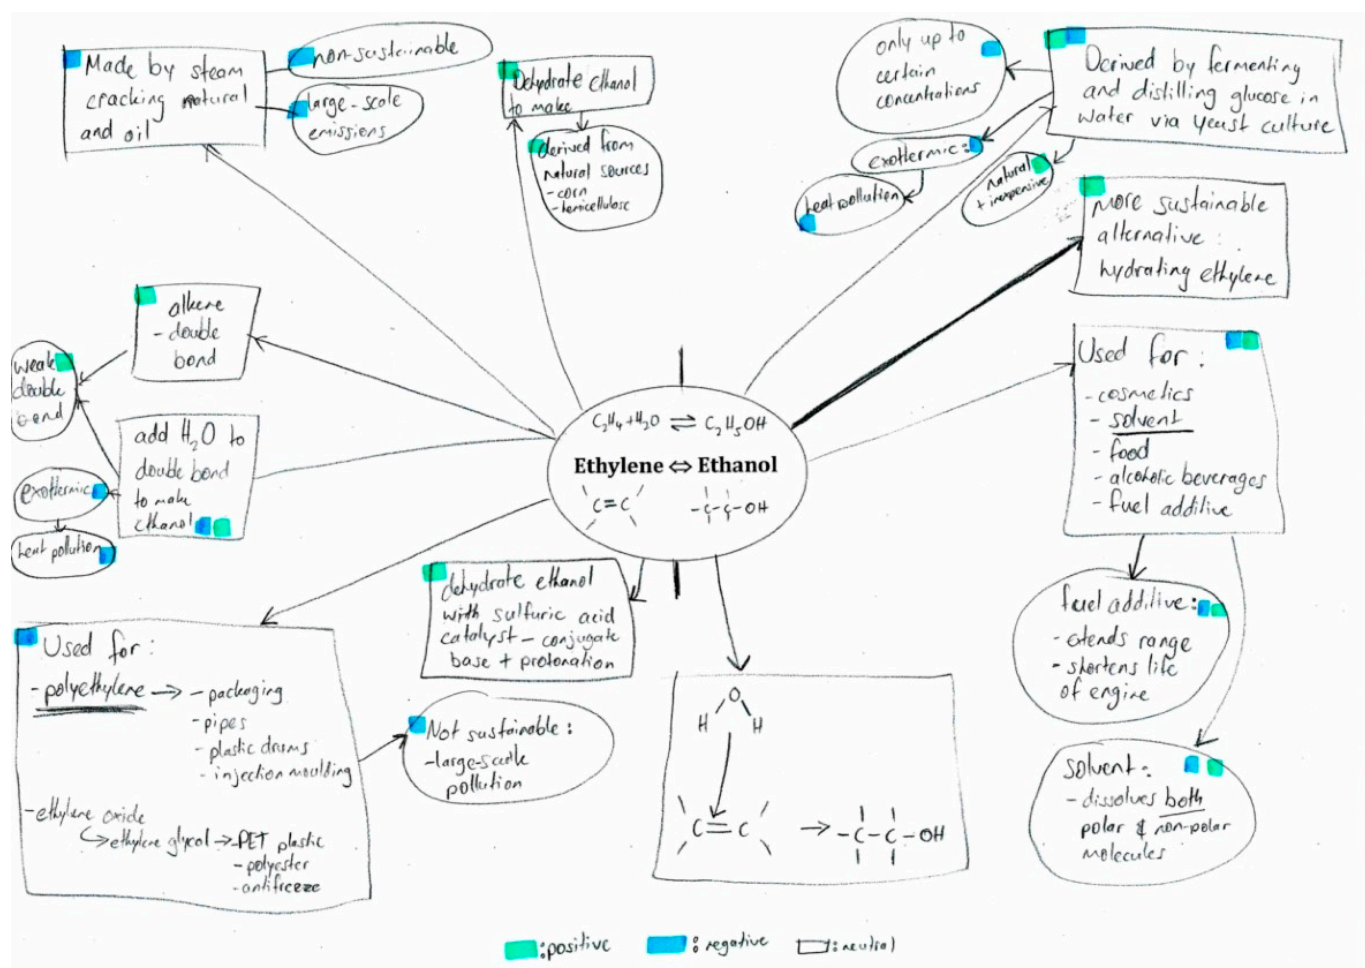 Made by steam
cracking natural
and oil
non-sustainable
large-scale
emissions
Dehydrate ethanol
to make
derived from
natural sources
- corn
- hemicellulose
only up to
certain
concentrations
Derived by fermenting
and distilling glucose in
water via yeast culture
exothermic:
heat pollution
natural
+ inexpensive
more sustainable
alternative:
hydrating ethylene
alkene
- double
bond
weak
double
bond
add H₂O to
double bond
to make
ethanol
exothermic
heat pollution
C₂H₄+H₂O ⇌ C₂H₅OH
Ethylene ⇔ Ethanol
C=C
-C-C-OH
Used for:
-cosmetics
- solvent
- food
- alcoholic beverages
- fuel additive
fuel additive:
- extends range
- shortens life
of engine
solvent:
- dissolves both
polar & non-polar
molecules
dehydrate ethanol
with sulfuric acid
catalyst - conjugate
base + protonation
Used for:
- polyethylene → - packaging
- pipes
- plastic drums
- injection moulding
- ethylene oxide
↳ ethylene glycol → PET plastic
- polyester
- antifreeze
Not sustainable:
- large-scale
pollution
O
H H
C=C → -C-C-OH
:positive :negative :neutral